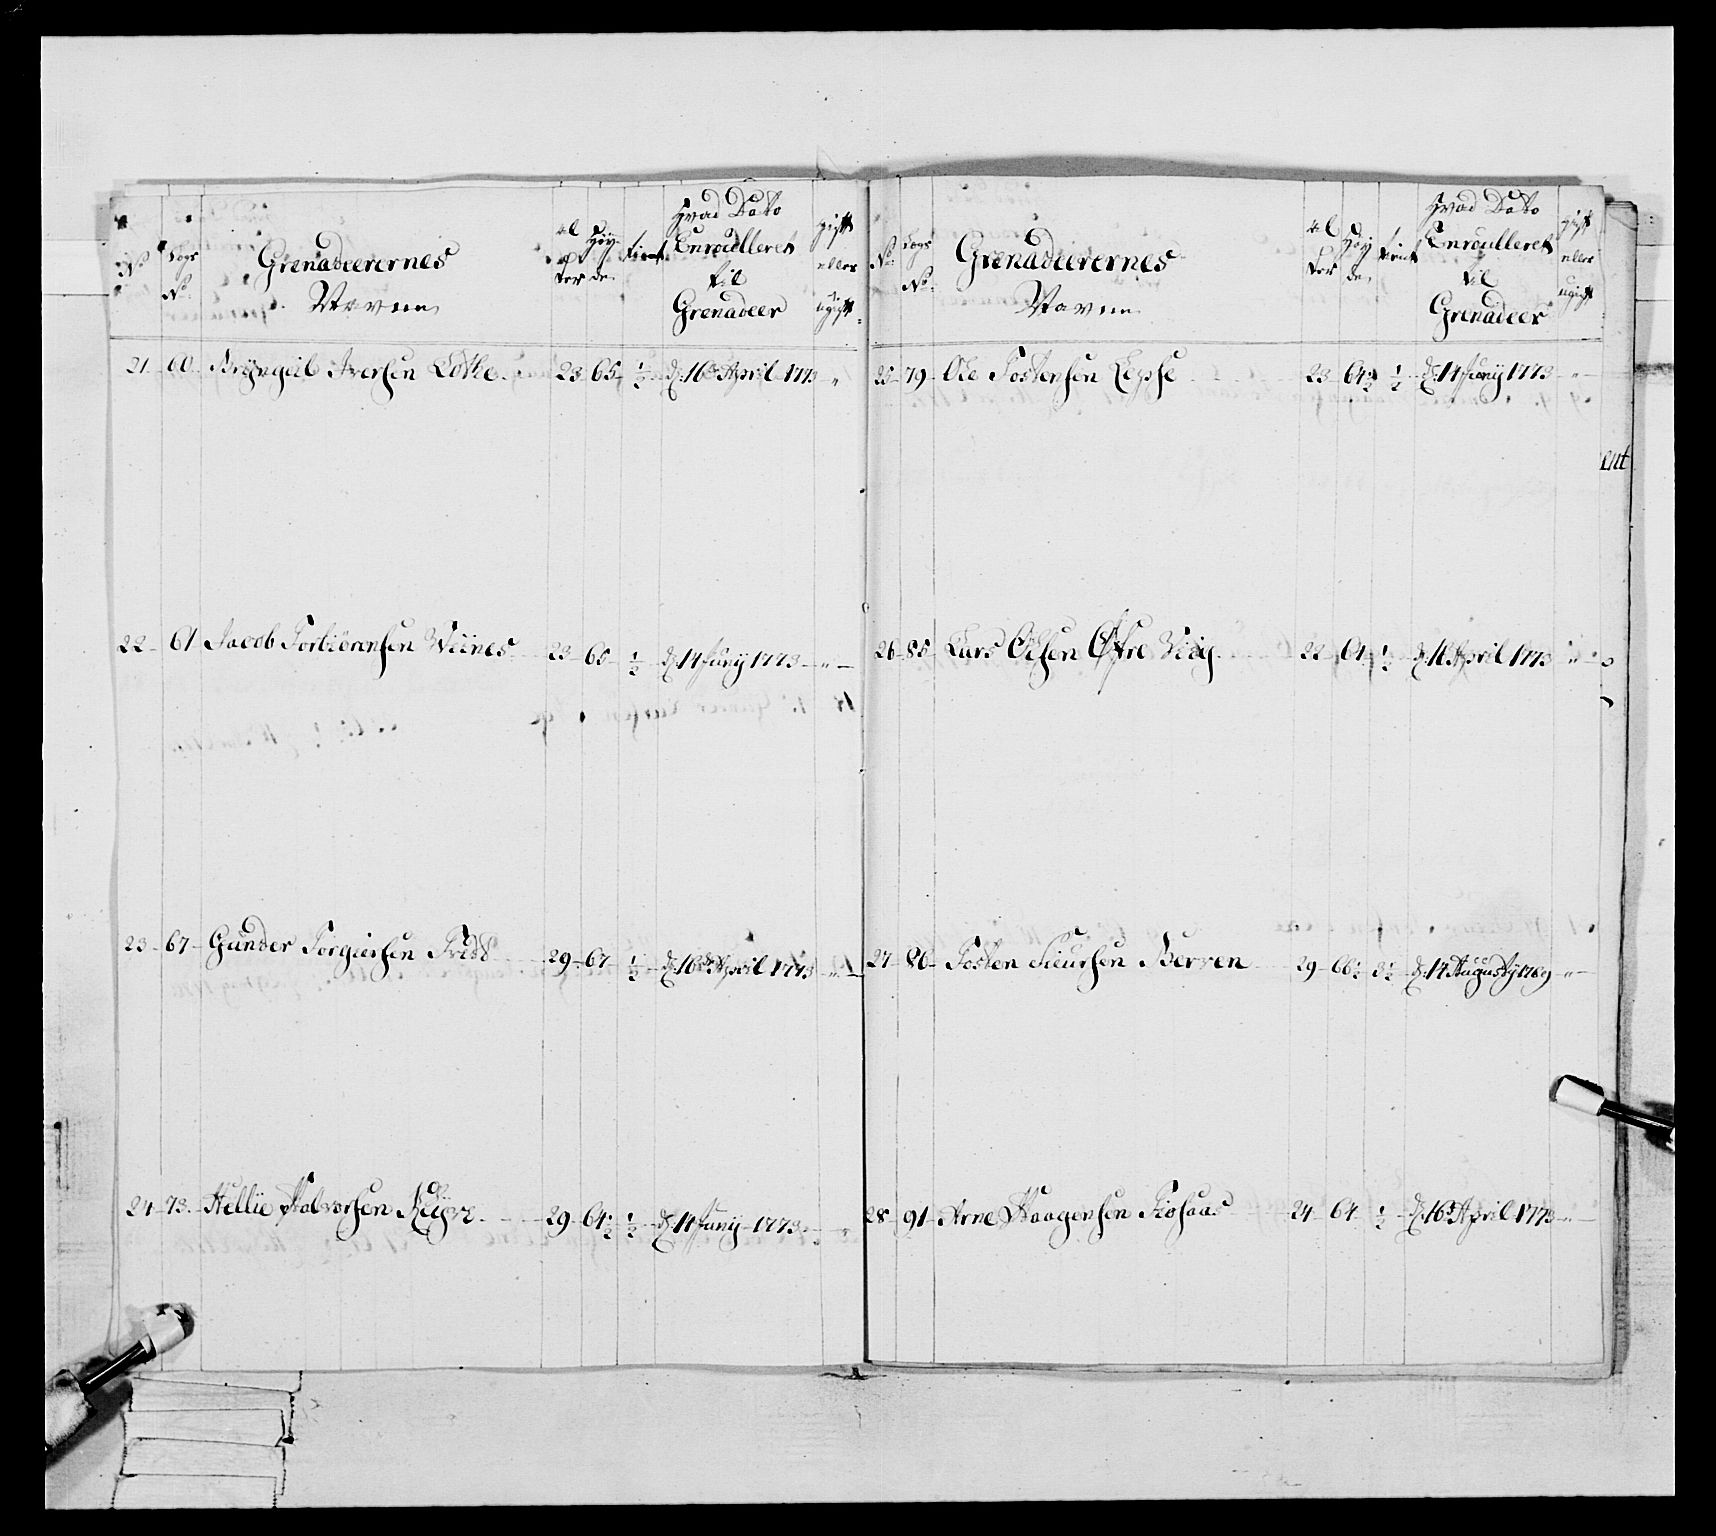 No
Logs No
Grenadeerernes Navne
al ter
Höy de
tient
Hvad Dato Enroulleret til Grenadeer
gift eller ugift
21 60 Bryngeil Iversen Lothe 23 65 ½ d: 16de April 1773 "
22 61 Jacob Torbiörensen Wiines 23 65 ½ d: 14 Juny 1773 "
23 67 Gunder Torgiersen Treds 29 67 ½ d: 16de April 1773 "
24 73 Hellie Halvorsen 29 64½ ½ d: 14 Juny 1773 "
No
Logs No
Grenadeerernes Navne
al ter
Höy de
tient
Hvad Dato Enroulleret til Grenadeer
gift eller ugift
25 79 Ole Tostensen Lepse 23 64½ ½ d: 14 Juny 1773 "
26 85 Lars Olsen Øfre Viig 22 64 ½ d: 16 April 1773 "
27 86 Tosten Siursen Berven 29 66½ 3½ d: 14 Augusty 1769 "
28 91 Arne Haagensen Tiosaas 24 64 ½ d: 16de April 1773 "
ent